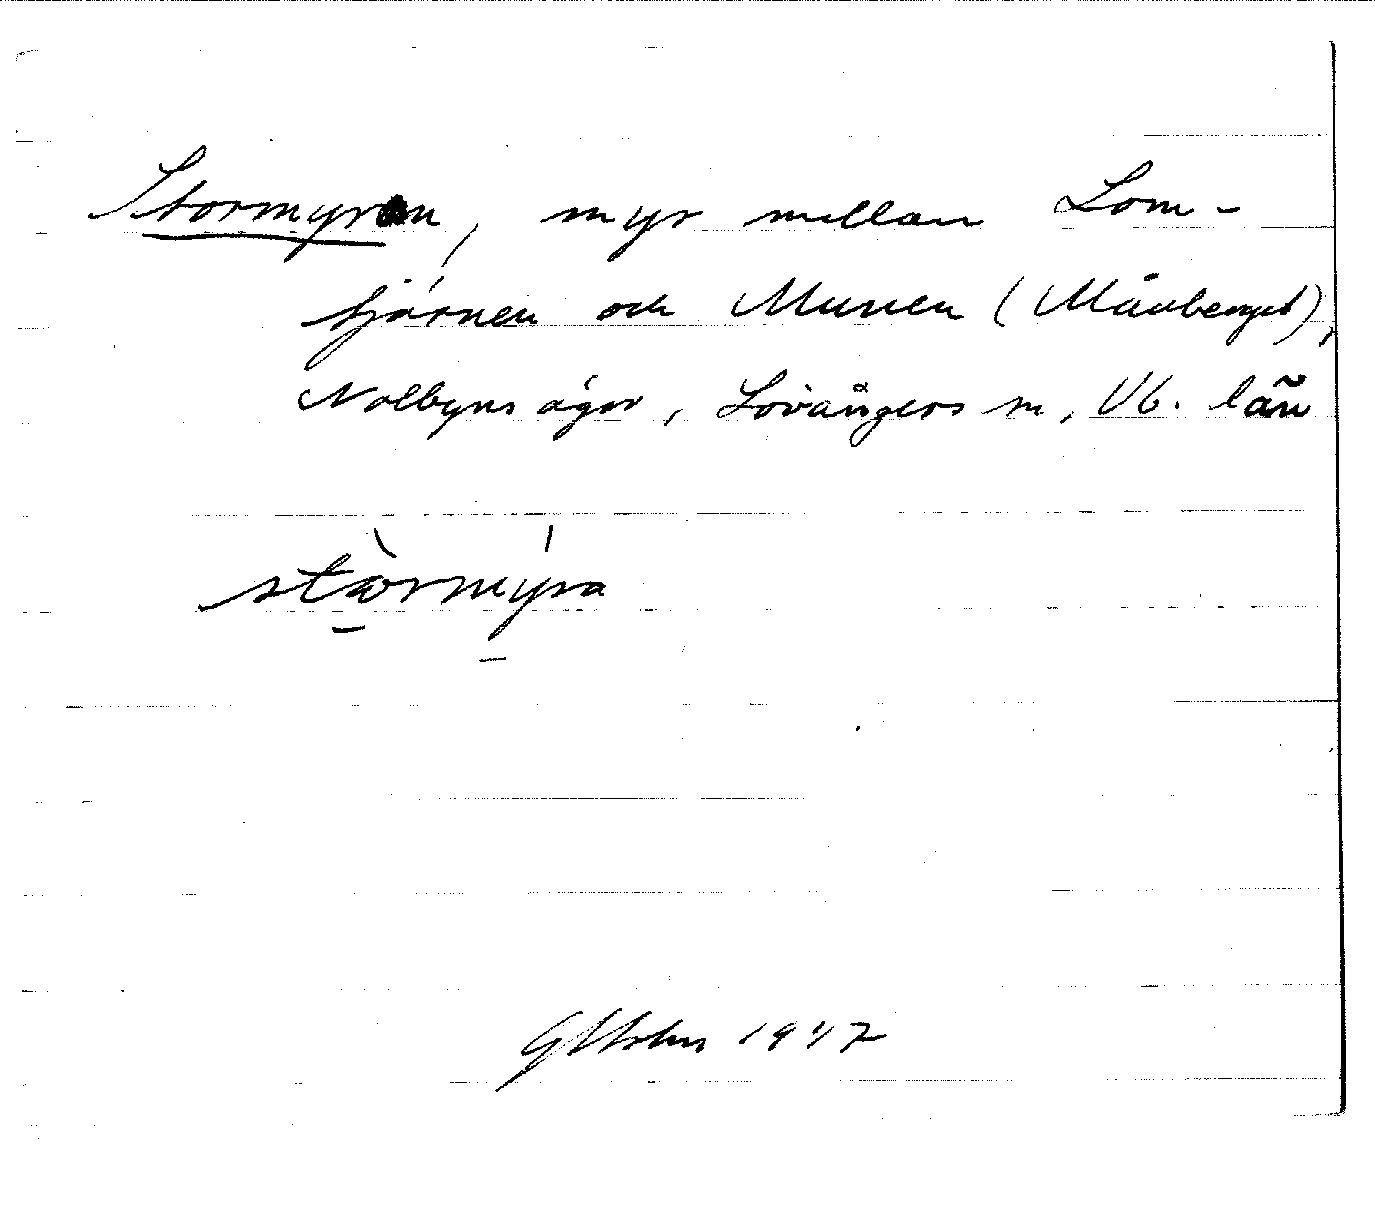 Stormyran, myr mellan Lom-
tjärnen och Muren (Måuberget),
Nolbyns ägor, Lövångers sn, Vb. län
stòrmýra
1947